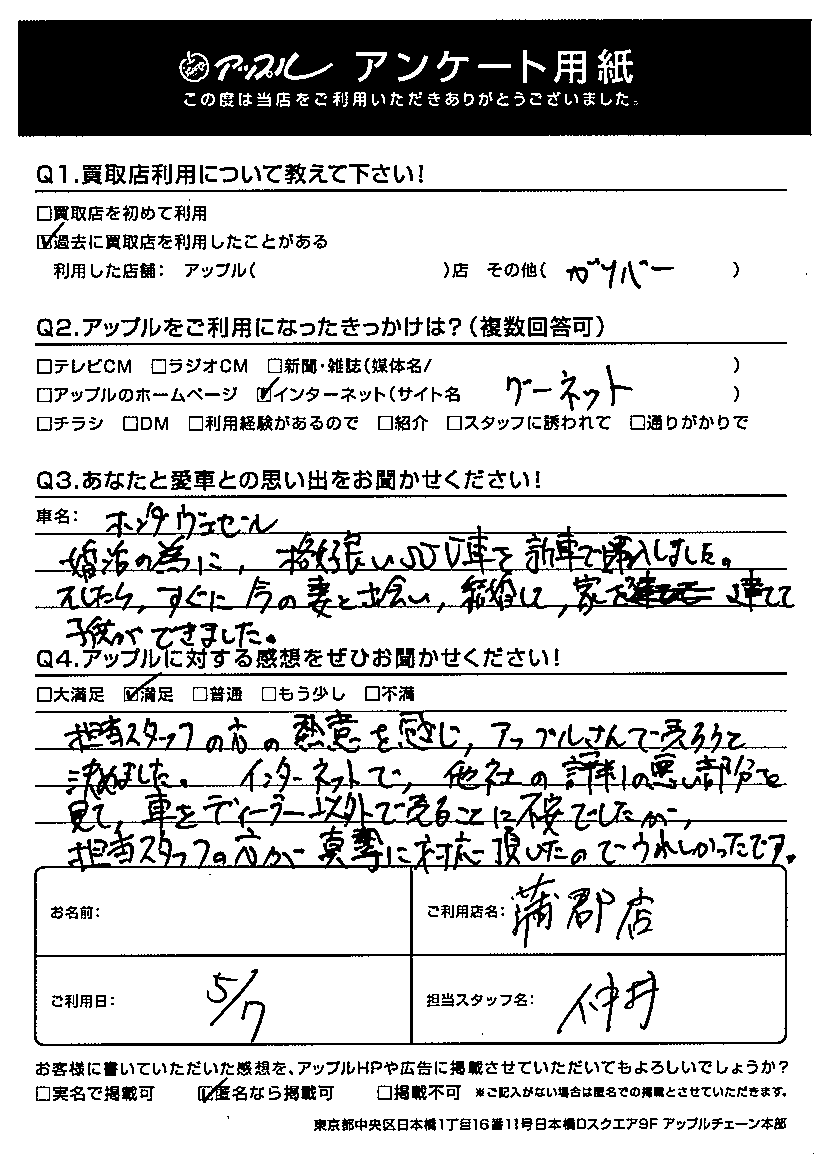 アップル アンケート用紙
この度は当店をご利用いただきありがとうございました。
Q1.買取店利用について教えて下さい!
□買取店を初めて利用
☑過去に買取店を利用したことがある
利用した店舗: アップル( )店 その他( ガリバー )
Q2.アップルをご利用になったきっかけは?(複数回答可)
□テレビCM □ラジオCM □新聞・雑誌(媒体名/ )
□アップルのホームページ ☑インターネット(サイト名 グーネット )
□チラシ □DM □利用経験があるので □紹介 □スタッフに誘われて □通りがかりで
Q3.あなたと愛車との思い出をお聞かせください!
車名: ホンダ ヴェゼール
婚活の為に, 格好良いSUV車を新車で購入しました。
そしたら, すぐに今の妻と出会い, 結婚して, 家を建てて
子供ができました。
Q4.アップルに対する感想をぜひお聞かせください!
□大満足 ☑満足 □普通 □もう少し □不満
担当スタッフの方の熱意を感じ, アップルさんで売ろうと
決めました。 インターネットで, 他社の評判の悪い部分を
見て, 車をディーラー以外で売ることに不安でしたが,
担当スタッフの方が真摯に対応頂したのでうれしかったです。
お名前:
ご利用店名: 蒲郡店
ご利用日: 5/7
担当スタッフ名: 仲井
お客様に書いていただいた感想を、アップルHPや広告に掲載させていただいてもよろしいでしょうか?
□実名で掲載可 ☑匿名なら掲載可 □掲載不可 ※ご記入がない場合は匿名での掲載とさせていただきます。
東京都中央区日本橋1丁目16番11号日本橋Dスクエア9F アップルチェーン本部